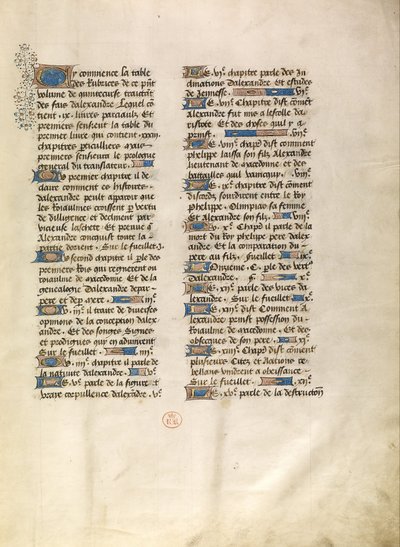 Cy commence la table
des Rubrices de ce pñt
volume de quintecurse traictãt
des fais dalexandre Lequel cõ
tient .ix. liures parciaulx Et
premiers sensieut la table du
premier liure qui contient .xxxi.
chapitres particuliers mais
premiers sensieut le prologue
general du translateur
Ou premier chapitre il de
claire comment ce histoire
dalexandre puet aparoir que
les Roiaulmes concquest par vertu
de dilligence et declinent par
vicieuse laschete Et preuue q̃
Alexandre conquist toute la
partie dorient . Sur le fueillet .i.
Ou second chapitre il ple des
premiers Rois qui regnerent ou
roiaulme de macedone Et de la
genealogie dalexandre de par
pere et de p mere . iiiᵉ.
Ou .iiiᵉ. il traite de diuerses
opinions de la conception dalex
andre . Et des songes signes
et prodiges qui en aduinrent
Sur le fueillet . iiiᵉ.
Ou .iiiiᵉ. chapitre il parle de
la natiuite dalexandre . vᵉ.
Le .vᵉ. parle de la figure et
vraie corpullence dalexãdre .vᵉ.
Le .viᵉ. chapitre parle des In
clinations dalexandre Et estudes
de Jennesse . viᵉ.
Le .viiᵉ. Chapitre dist cõmẽt
Alexandre fut mis a lescolle da
ristote Et des choses quil y a
print . viiᵉ.
Le .viiiᵉ. chapᵉ dist comment
phelippe laissa son filz Alexandre
lieutenant de macedone et des
batailles quil vainquy . viiiᵉ.
Le .ixᵉ. chapitre dist cõment
discords sourdirent entre le Roy
phelippe . Olimpias sa femme
Et Alexandre son filz . viiiᵉ.
Le .xᵉ. Chapᵉ il parle de la
mort du Roy phelippe pere dalex
andre Et la comparation du
pere au filz . fueillet ixᵉ.
Le Onzieme . C . ple des vertꝰ
dalexandre . f . xᵉ.
Le .xiiᵉ. parle des vices da
lexandre . Sur le fueillet xᵉ.
Le .xiiiᵉ. dist Comment A
lexandre print possession du
Roiaulme de macedone . Et des
obseques de son pere . xiᵉ.
Le .xiiiiᵉ. Chapᵉ dist cõment
pluiseurs Citez et nations re
bellans vindrent a obeissance .
Sur le fueillet . xiiᵉ.
Le .xvᵉ. parle de la destruction